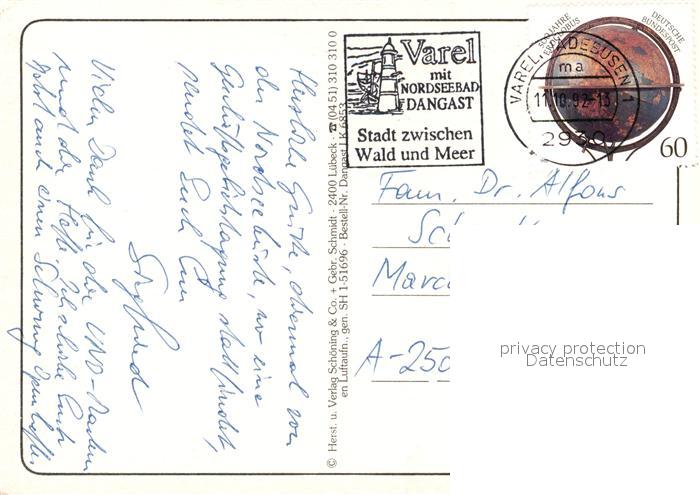 Varel
mit
NORDSEEBAD
DANGAST
Stadt zwischen
Wald und Meer
500 JAHRE
ERDGLOBUS
DEUTSCHE
BUNDESPOST
60
VAREL, JADEBUSEN 1
ma
11.10.92-13
2930
Herzliche Grüße, diesmal von
der Nordseeküste, wo eine
stattfindet,
sendet Euch Euer
Siegfried
Vielen Dank für die
und die Hefte. Ich schicke Euch
auch einen
© Herst. u. Verlag Schöning & Co. + Gebr. Schmidt · 2400 Lübeck · ☎ (04 51) 310 310 0
en Luftaufn., gen. SH 1-51696 · Bestell-Nr. Dangast LK 6853
Fam. Dr. Alfons
Marc
A-250
privacy protection
Datenschutz